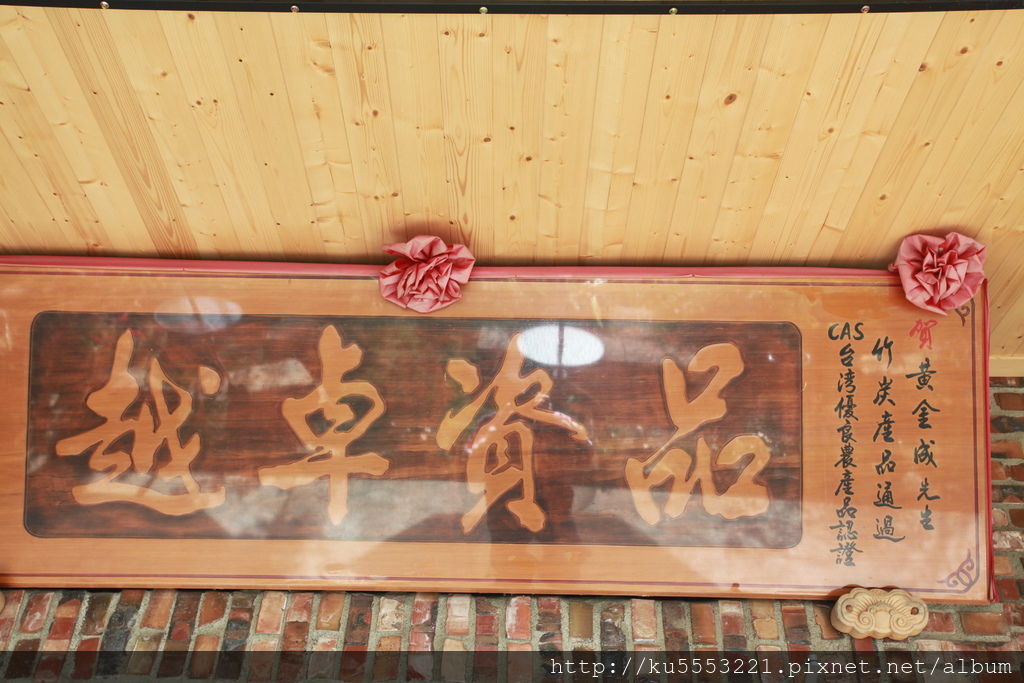 賀 黃金成先生
竹炭產品通過
CAS台湾優良農產品認證
品資卓越
http://ku5553221.pixnet.net/album